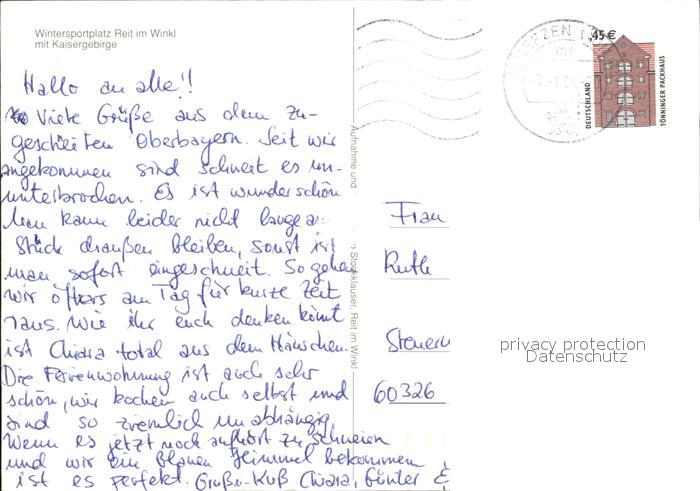 Wintersportplatz Reit im Winkl
mit Kaisergebirge
Hallo an alle!!
Viele Grüße aus dem zu-
geschneiten Oberbayern. Seit wir
angekommen sind schneit es un-
unterbrochen. Es ist wunderschön
Man kann leider nicht lange a-
Stück draußen bleiben, sonst ist
man sofort eingeschneit. So gehen
wir öfters am Tag für kurze Zeit
raus. Wie ihr euch denken könnt
ist Chiara total aus dem Häuschen.
Die Ferienwohnung ist auch sehr
schön, wir kochen auch selbst und
sind so ziemlich unabhängig.
Wenn es jetzt noch aufhört zu schneien
und wir ein blauen Himmel bekommen
ist es perfekt. Gruß+Kuß Chiara, Günter &
Aufnahme und
Stockklauser, Reit im Winkl
SEEZEN 1
45 €
DEUTSCHLAND
TÖNNINGER PACKHAUS
Frau
Ruth
60326
privacy protection
Datenschutz